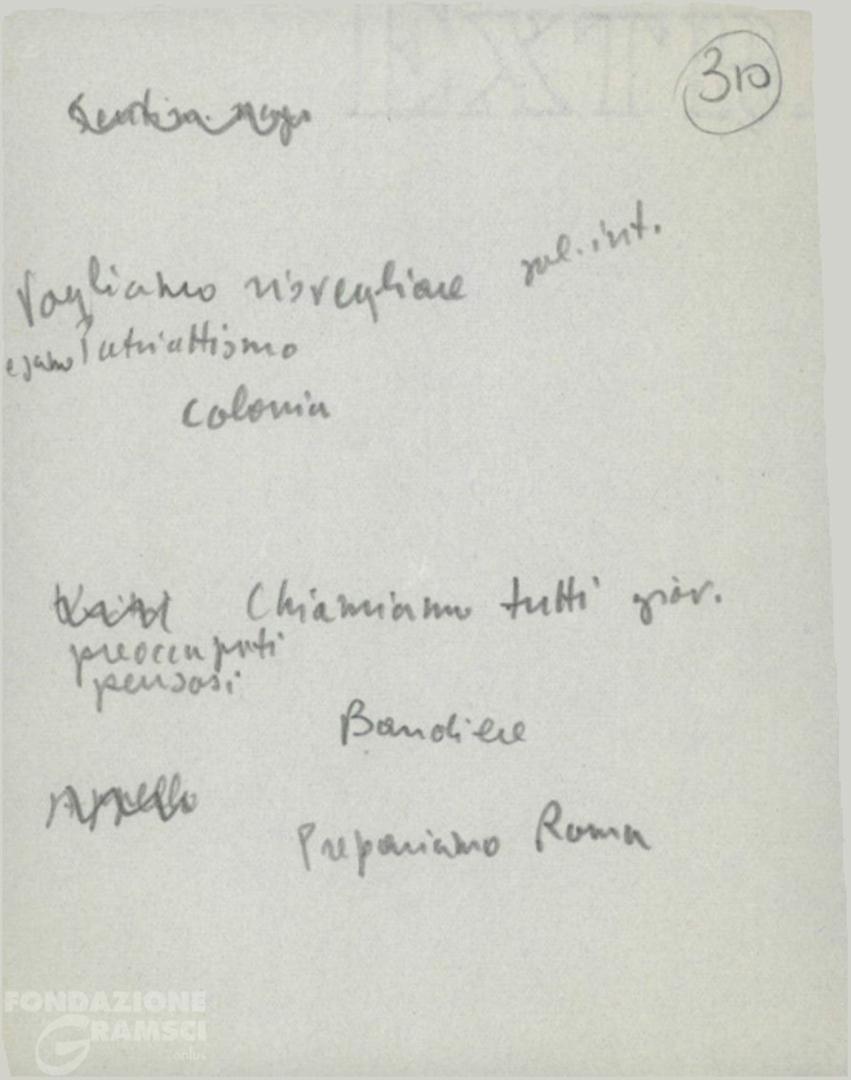 310
Vogliamo risvegliare pol. int.
Patriottismo
colonia
Chiamiamo tutti giov.
preoccupati
pensosi
Bandiere
Appello
Prepariamo Roma
FONDAZIONE
GRAMSCI
onlus